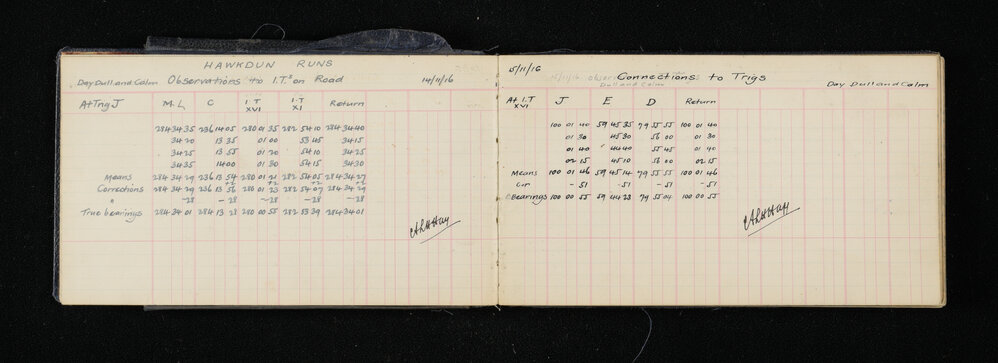 HAWKDUN RUNS
Day Dull and Calm Observations to I.T.s on Road 14/11/16
At Trig J M.L C I.T XVI I.T XI Return
284 34 35 236 14 05 280 01 35 282 54 10 284 34 40
34 20 13 35 01 00 53 45 34 15
34 25 13 55 01 20 54 10 34 25
34 35 14 00 01 30 54 15 34 30
Means 284 34 29 236 13 54 280 01 21 282 54 05 284 34 27
+2 +2 +2 +2
Corrections 284 34 29 236 13 56 280 01 23 282 54 07 284 34 29
" -28 -28 -28 -28 -28
True bearings 284 34 01 284 13 28 280 00 55 282 53 39 284 34 01
15/11/16 Connections to Trigs
Dull and Calm
Day Dull and Calm
At I.T XVI J E D Return
100 01 40 59 45 35 79 55 55 100 01 40
01 30 45 30 56 00 01 30
01 40 44 40 55 45 01 40
02 15 45 10 56 00 02 15
Means 100 01 46 59 45 14 79 55 55 100 01 46
Cor - 51 - 51 - 51 - 51
Bearings 100 00 55 59 44 23 79 55 04 100 00 55